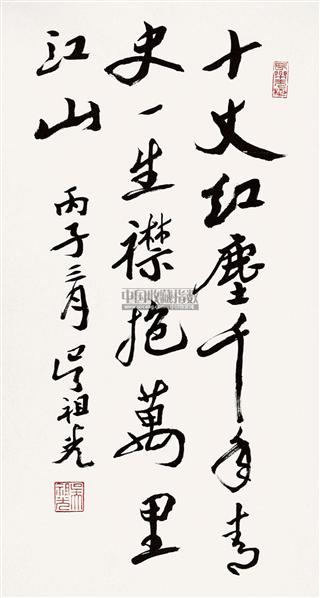 十丈红尘千年青
史一生襟抱萬里
江山
丙子三月 吴祖光
中国收藏指数